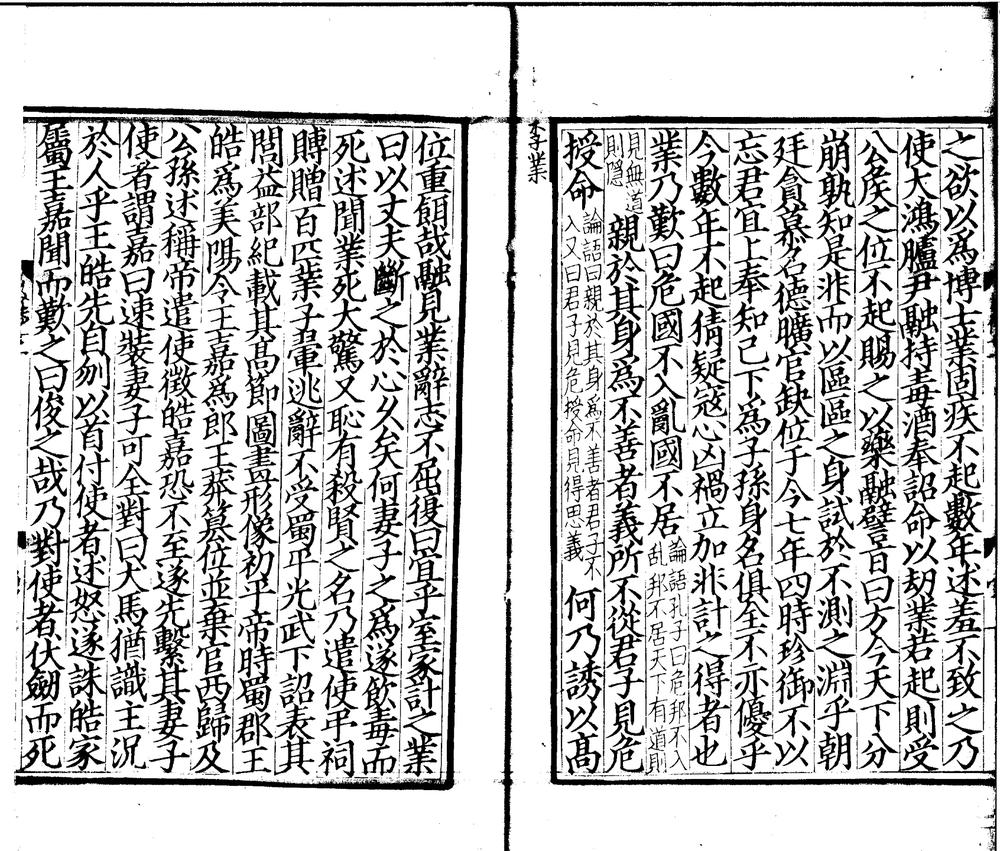 之欲以爲博士業固疾不起數年述羞不致之乃
使大鴻臚尹融持毒酒奉詔命以劫業若起則受
公侯之位不起賜之以藥融譬旨曰方今天下分
崩孰知是非而以區區之身試於不測之淵乎朝
廷貪慕名德曠官缺位于今七年四時珍御不以
忘君宜上奉知己下爲子孫身名俱全不亦優乎
今數年不起猜疑寇心凶禍立加非計之得者也
業乃歎曰危國不入亂國不居論語孔子曰危邦不入乱邦不居天下有道則
見無道則隱親於其身爲不善者義所不從君子見危
授命論語曰親於其身爲不善者君子不入又曰君子見危授命見得思義何乃誘以高
李業
位重餌哉融見業辭志不屈復曰宜乎室家計之業
曰以丈夫斷之於心久矣何妻子之爲遂飲毒而
死述聞業死大驚又恥有殺賢之名乃遣使弔祠
賻贈百匹業子翬逃辭不受蜀平光武下詔表其
閭益部紀載其高節圖畫形像初平帝時蜀郡王
皓爲美陽令王嘉爲郎王莽篡位並棄官西歸及
公孫述稱帝遣使徵皓嘉恐不至遂先繫其妻子
使者謂嘉曰速裝妻子可全對曰犬馬猶識主況
於人乎王皓先自刎以首付使者述怒遂誅皓家
屬王嘉聞而歎之曰後之哉乃對使者伏劒而死